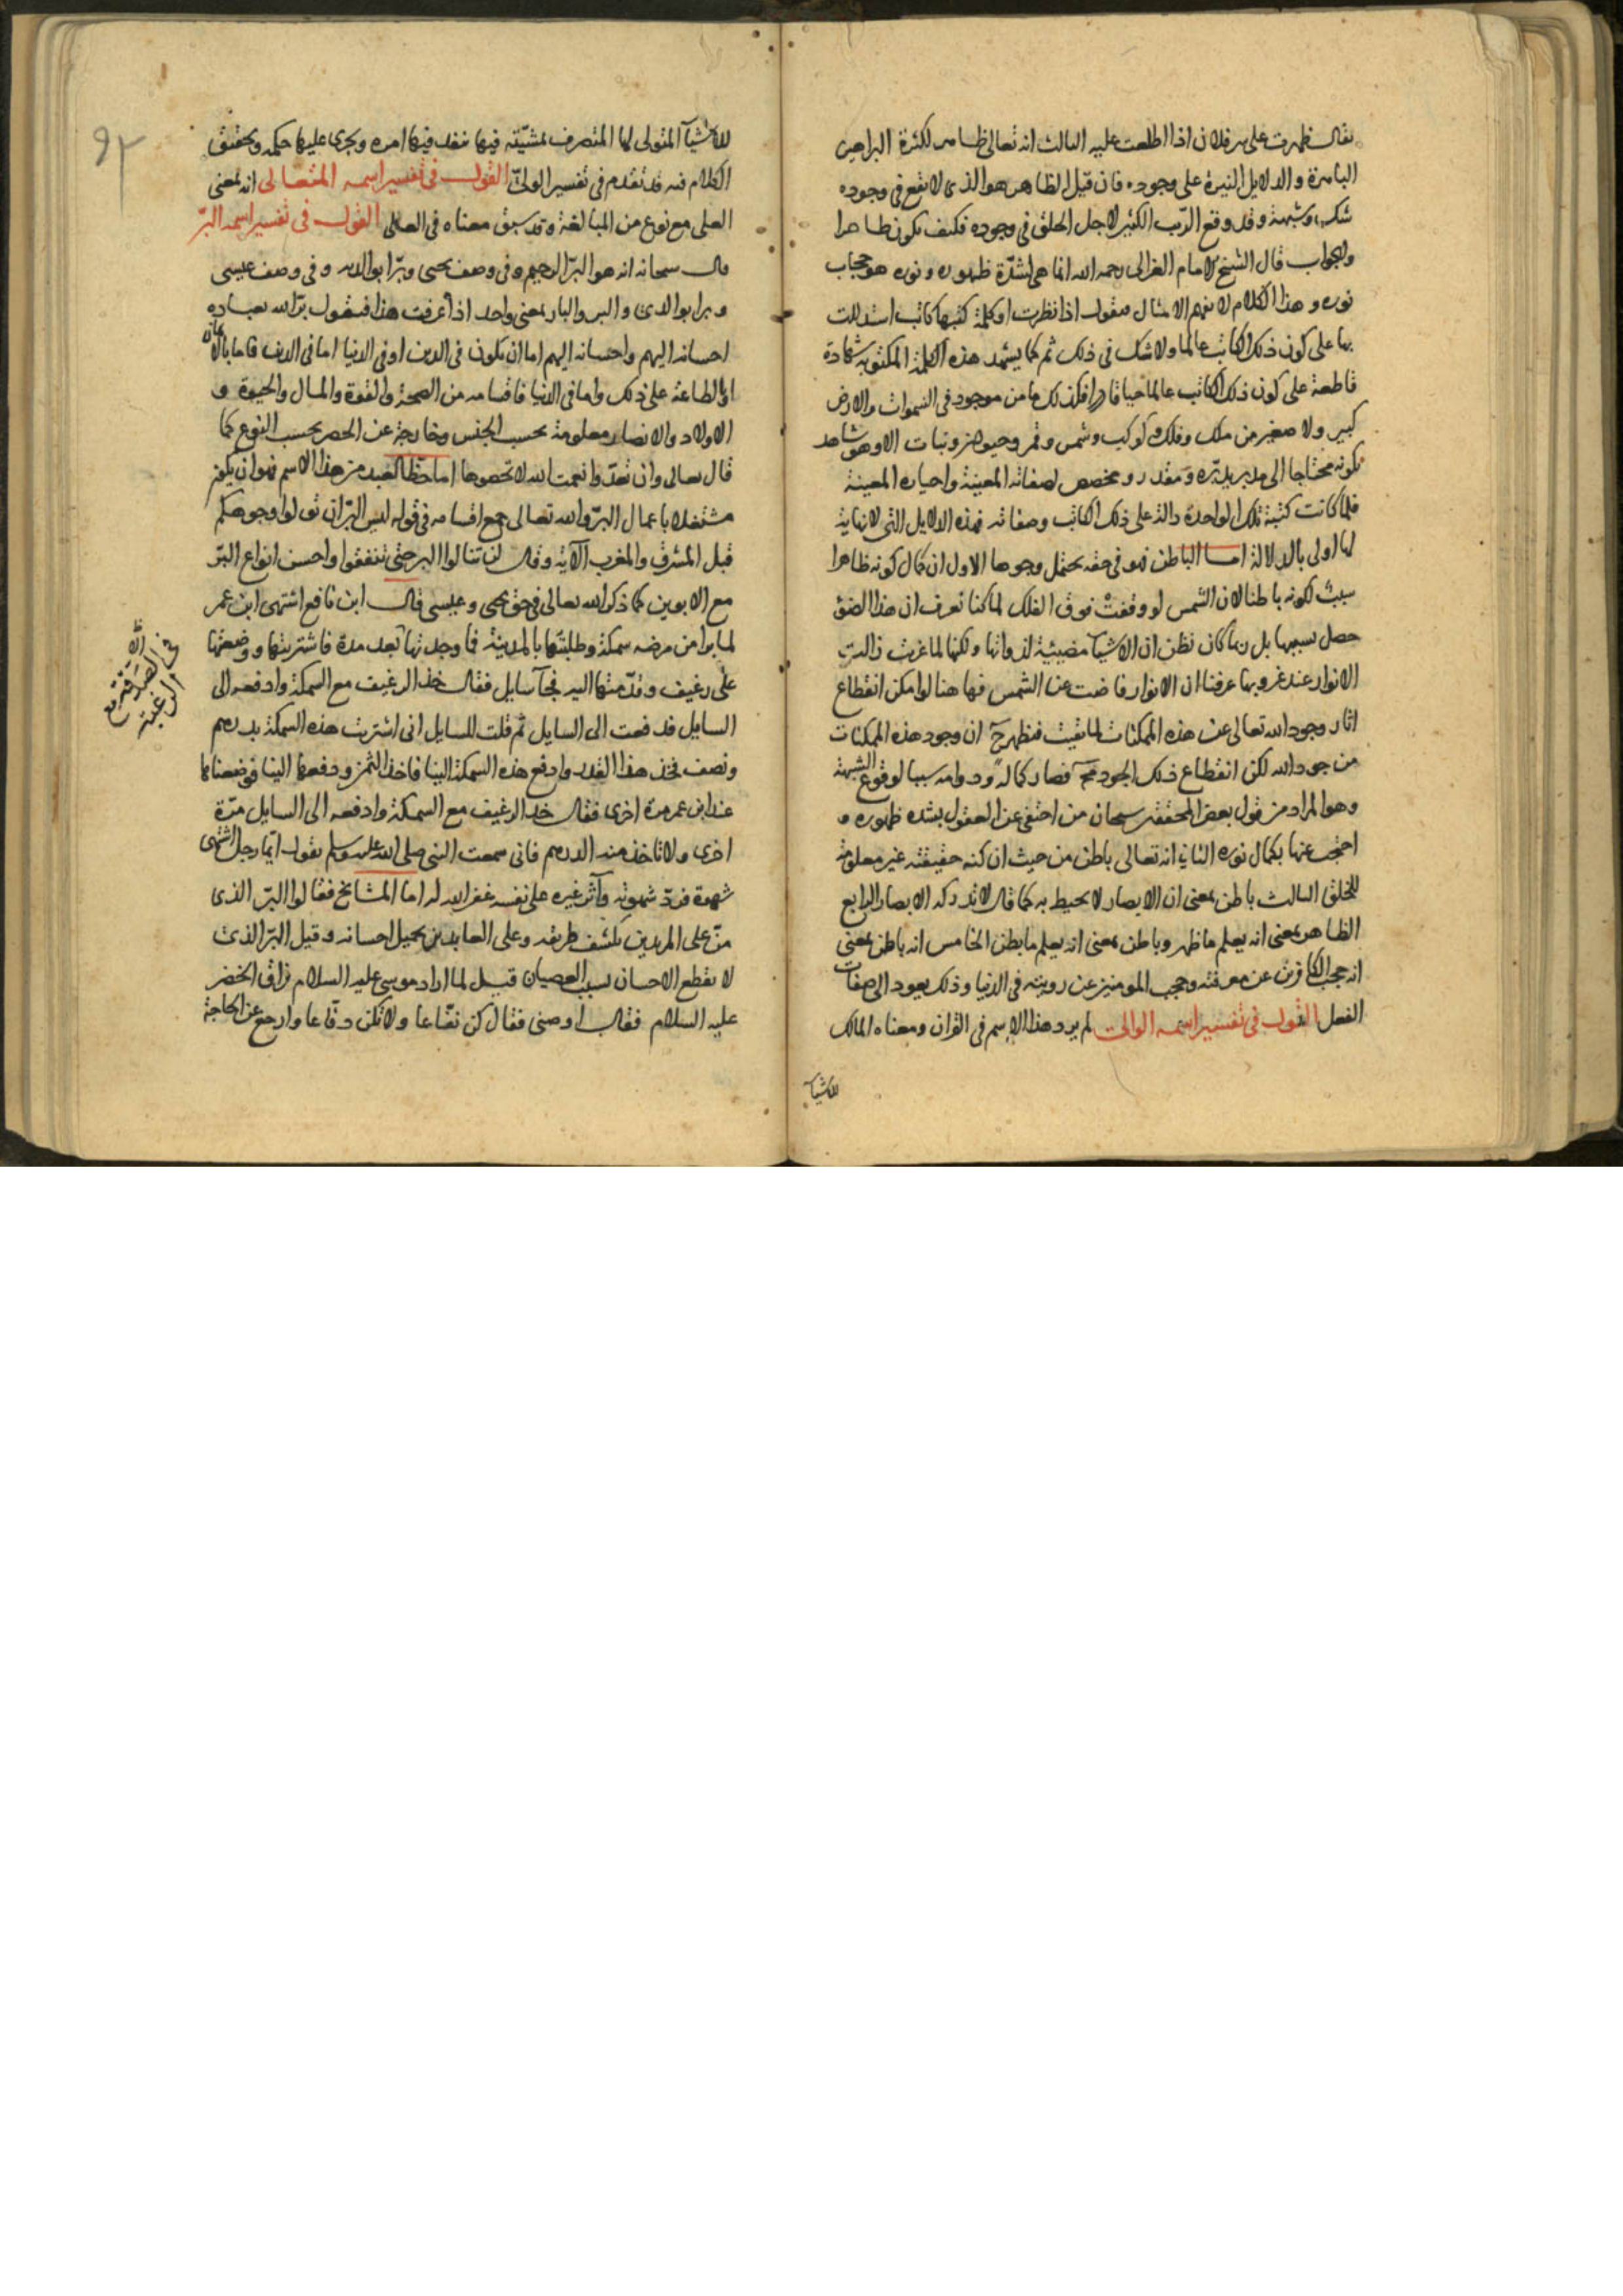 يقال ظهرت على سر فلان اذا اطلعت عليه الثالث انه تعالى ظاهر لكثرة البراهين
الباهرة والدلايل النيرة على وجوده فان قيل الظاهر هو الذى لا يقع فى وجوده
شك وشبهة وقد وقع الريب الكثير لاجل الخلق فى وجوده فكيف يكون ظاهرا
والجواب قال الشيخ الامام الغزالى رحمه الله انما هى لشدة ظهوره ونوره هو حجاب
نوره وهذا الكلام لا يفهم الا بمثال فنقول اذا نظرت او كلمة كتبها كاتب استدللت
بها على كون ذلك الكاتب عالما ولا شك فى ذلك ثم كما يشهد هذه الكلمة المكتوبة شهادة
قاطعة على كون ذلك الكاتب عالما حيا قادرا فكذلك ما من موجود فى السموات والارض
كبير ولا صغير من ملك وفلك وكوكب وشمس وقمر وحيوان ونبات الا وهو شاهد
بكونه محتاجا الى مدبر يدبره ومقدر ومخصص لصفاته المعينة واحيازه المعينة
فلما كانت كتبة تلك الواحدة دالة على ذلك الكاتب وصفاته فهذه الدلايل التى لا نهاية
لها اولى بالدلالة اما الباطن فهو فى حقه يحتمل وجوها الاول ان كمال كونه ظاهرا
سبب لكونه باطنا لان الشمس لو وقفت فوق الفلك لما كنا نعرف ان هذا الضوء
حصل بسببها بل ربما كان نظن ان الاشيا مضيئية لذواتها ولكنها لما غربت زالت
الانوار عند غروبها عرفنا ان الانوار فاضت عن الشمس فها هنا لو امكن انقطاع
اثار وجود الله تعالى عن هذه الممكنات لما بقيت فيظهر ح ان وجود هذه الممكنات
من جود الله لكن انقطاع ذلك الجود مح فصار كماله ودوامه سببا لوقوع الشبهة
وهو المراد من قول بعض المحققين سبحان من اختفى عن العقول بشدة ظهوره و
احتجب عنها بكمال نوره الثانى انه تعالى باطن من حيث ان كنه حقيقته غير معلومة
للخلق الثالث باطن بمعنى ان الابصار لا يحيط به كما قال لا تدركه الابصار الرابع
الظاهر بمعنى انه يعلم ما ظهر وباطن بمعنى انه يعلم ما بطن الخامس انه باطن بمعنى
انه حجب الكافرين عن معرفته وحجب المومنين عن رويته فى الدنيا وذلك يعود الى صفات
الفعل القول فى تفسير اسمه الوالى لم يرد هذا الاسم فى القران ومعناه المالك
للاشيا
٩٢
للاشيآ المتولى لها المتصرف بمشيته فيها ينفد فيها امره ويجرى عليها حكمه وتحقيق
الكلام فيه قد تقدم فى تفسير الولى القول فى تفسير اسمه المتعالى انه بمعنى
العلى مع نوع من المبالغة وقد سبق معناه فى العالى القول فى تفسير اسمه البر
قال سبحانه انه هو البر الرحيم وفى وصف يحيى وبرا بوالديه وفى وصف عيسى
وبرا بوالدتى والبر والبار بمعنى واحد اذا عرفت هذا فنقول بر الله بعباده
احسانه اليهم واحسانه اليهم اما ان يكون فى الدين او فى الدنيا اما فى الدين فاما بالايمان
او الطاعة على ذلك واما فى الدنيا فاقسامه من الصحة والقوة والمال والحيوة و
الاولاد والانصار معلومة بحسب الجنس وخارجة عن الحصر بحسب النوع كما
قال تعالى وان تعدوا نعمت الله لا تحصوها اما حظ العبد من هذا الاسم فهو ان يكون
مشتغلا باعمال البر والله تعالى جمع اقسامه فى قوله ليس البر ان تولوا وجوهكم
قبل المشرق والمغرب الآية وقال لن تنالوا البر حتى تنفقوا واحسن انواع البر
مع الابوين كما ذكر الله تعالى فى حق يحيى وعيسى قال ابن نافع اشتهى ابن عمر
لما برا من مرضه سمكة وطلبتها بالمدينة فما وجدتها بعد مدة فاشتريتها ووضعتها
على رغيف وقدمتها اليه فجآ سايل فقال خذ الرغيف مع السمكة وادفعه الى
السايل فدفعت الى السايل ثم قلت للسايل انى اشتريت هذه السمكة بدرهم
ونصف فخذ هذا القدر وادفع هذه السمكة الينا فاخذ الثمن ودفعها الينا فوضعناها
عند ابن عمر مرة اخرى فقال خذ الرغيف مع السمكة وادفعه الى السايل مرة
اخرى ولا تاخذ منه الدرهم فانى سمعت النبى صلى الله عليه وسلم يقول ايما رجل اشتهى
شهوة فرد شهوته وآثر غيره على نفسه غفر الله له اما المشايخ فقالوا البر الذى
من على المريدين بكشف طريقه وعلى العابدين بجميل احسانه وقيل البر الذى
لا يقطع الاحسان بسبب العصيان قيل لما اراد موسى عليه السلام فراق الخضر
عليه السلام فقال اوصنى فقال كن نفاعا ولا تكن دفاعا وارجع عن الحاجة
فى الصدقة